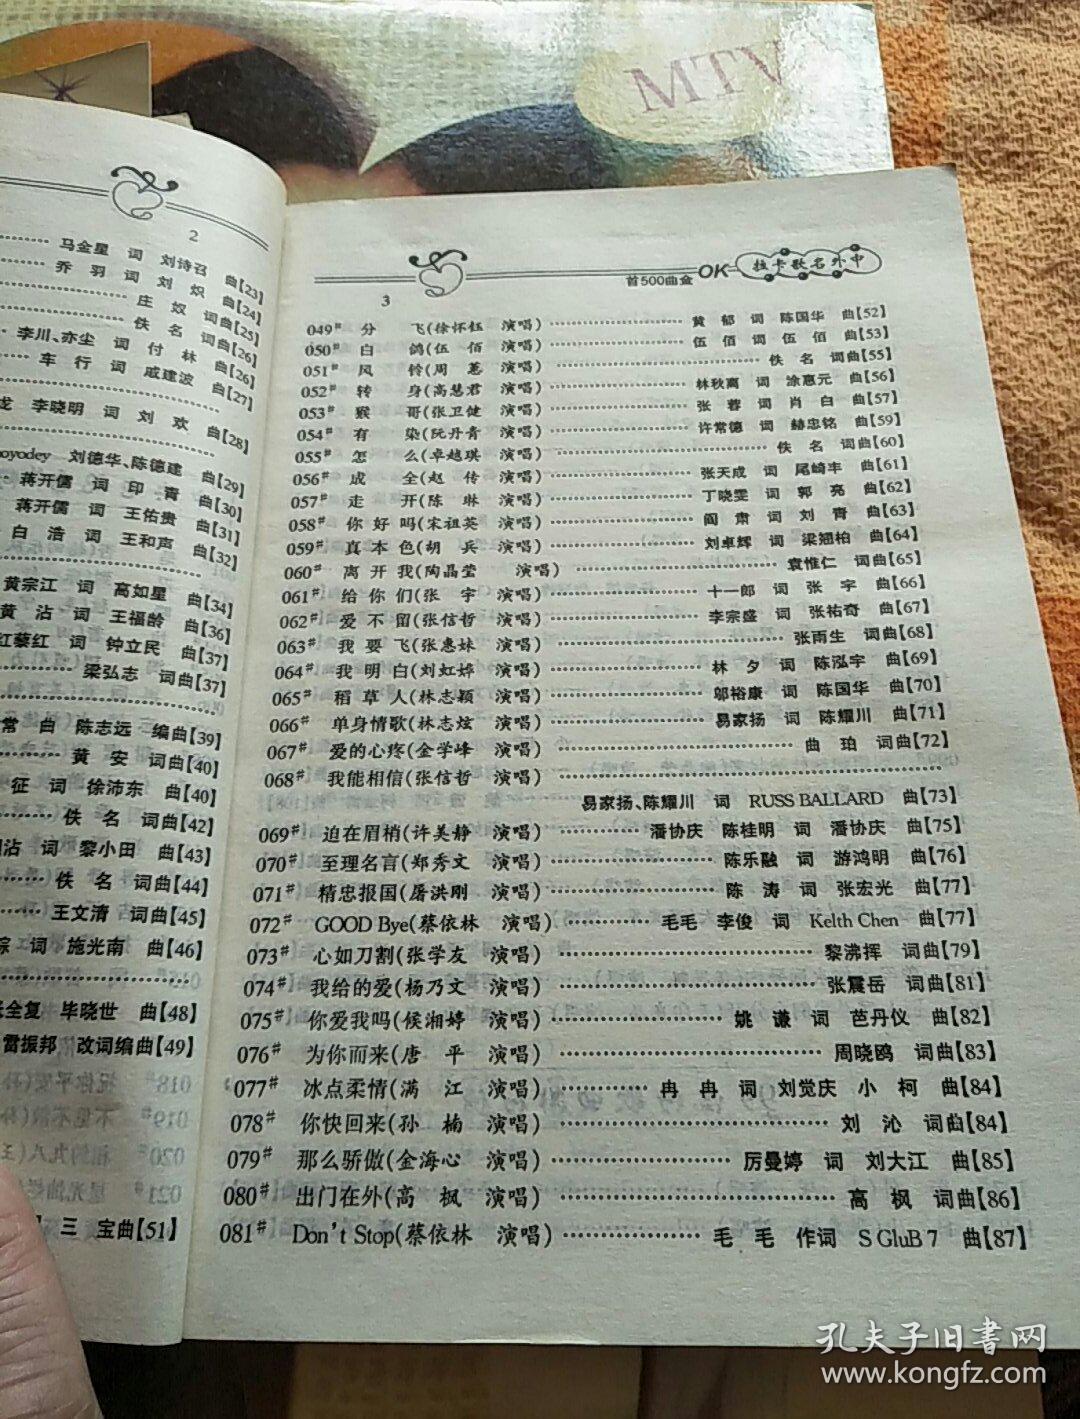 MTV
2
马金星 词 刘诗召 曲【23】
乔 羽 词 刘 炽 曲【24】
庄 奴 词曲【25】
佚 名 词曲【26】
李川、亦尘 词 付 林 曲【26】
车 行 词 戚建波 曲【27】
龙 李晓明 词 刘 欢 曲【28】
oyodey 刘德华、陈德建 曲【29】
蒋开儒 词 印 青 曲【30】
蒋开儒 词 王佑贵 曲【31】
白 浩 词 王和声 曲【32】
黄宗江 词 高如星 曲【34】
黄 沾 词 王福龄 曲【36】
红藜红 词 钟立民 曲【37】
梁弘志 词曲【37】
常 曲 陈志远 编曲【39】
黄 安 词曲【40】
征 词 徐沛东 曲【40】
佚 名 词曲【42】
沾 词 黎小田 曲【43】
佚 名 词曲【44】
王文清 词曲【45】
词 施光南 曲【46】
全复 毕晓世 曲【48】
雷振邦 改词编曲【49】
三 宝曲【51】
首500曲金 OK 拉卡歌名外中
3
049# 分 飞(徐怀钰 演唱)………………黄 郁 词 陈国华 曲【52】
050# 白 鸽(伍 佰 演唱)………………伍 佰 词 伍 佰 曲【53】
051# 风 铃(周 蕙 演唱)………………佚 名 词曲【55】
052# 转 身(高慧君 演唱)………………林秋离 词 涂惠元 曲【56】
053# 猴 哥(张卫健 演唱)………………张 蓉 词 肖 白 曲【57】
054# 有 染(阮丹青 演唱)………………许常德 词 赫忠铭 曲【59】
055# 怎 么(卓越琪 演唱)………………佚 名 词曲【60】
056# 成 全(赵 传 演唱)………………张天成 词 尾崎丰 曲【61】
057# 走 开(陈 琳 演唱)………………丁晓雯 词 郭 亮 曲【62】
058# 你 好 吗(宋祖英 演唱)………………阎 肃 词 刘 青 曲【63】
059# 真 本 色(胡 兵 演唱)………………刘卓辉 词 梁翘柏 曲【64】
060# 离 开 我(陶晶莹 演唱)………………袁惟仁 词曲【65】
061# 给 你 们(张 宇 演唱)………………十一郎 词 张 宇 曲【66】
062# 爱 不 留(张信哲 演唱)………………李宗盛 词 张祐奇 曲【67】
063# 我 要 飞(张惠妹 演唱)………………张雨生 词曲【68】
064# 我 明 白(刘虹嬅 演唱)………………林 夕 词 陈泓宇 曲【69】
065# 稻 草 人(林志颖 演唱)………………邬裕康 词 陈国华 曲【70】
066# 单身情歌(林志炫 演唱)………………易家扬 词 陈耀川 曲【71】
067# 爱的心疼(金学峰 演唱)………………曲 珀 词曲【72】
068# 我能相信(张信哲 演唱)………………
易家扬、陈耀川 词 RUSS BALLARD 曲【73】
069# 迫在眉梢(许美静 演唱)………………潘协庆 陈桂明 词 潘协庆 曲【75】
070# 至理名言(郑秀文 演唱)………………陈乐融 词 游鸿明 曲【76】
071# 精忠报国(屠洪刚 演唱)………………陈 涛 词 张宏光 曲【77】
072# GOOD Bye(蔡依林 演唱)………………毛毛 李俊 词 Kelth Chen 曲【77】
073# 心如刀割(张学友 演唱)………………黎沸挥 词曲【79】
074# 我给的爱(杨乃文 演唱)………………张震岳 词曲【81】
075# 你爱我吗(候湘婷 演唱)………………姚 谦 词 芭丹仪 曲【82】
076# 为你而来(唐 平 演唱)………………周晓鸥 词曲【83】
077# 冰点柔情(满 江 演唱)………………冉 冉 词 刘觉庆 小 柯 曲【84】
078# 你快回来(孙 楠 演唱)………………刘 沁 词曲【84】
079# 那么骄傲(金海心 演唱)………………厉曼婷 词 刘大江 曲【85】
080# 出门在外(高 枫 演唱)………………高 枫 词曲【86】
081# Don't Stop(蔡依林 演唱)………………毛 毛 作词 S GluB 7 曲【87】
孔夫子旧書网
www.kongfz.com